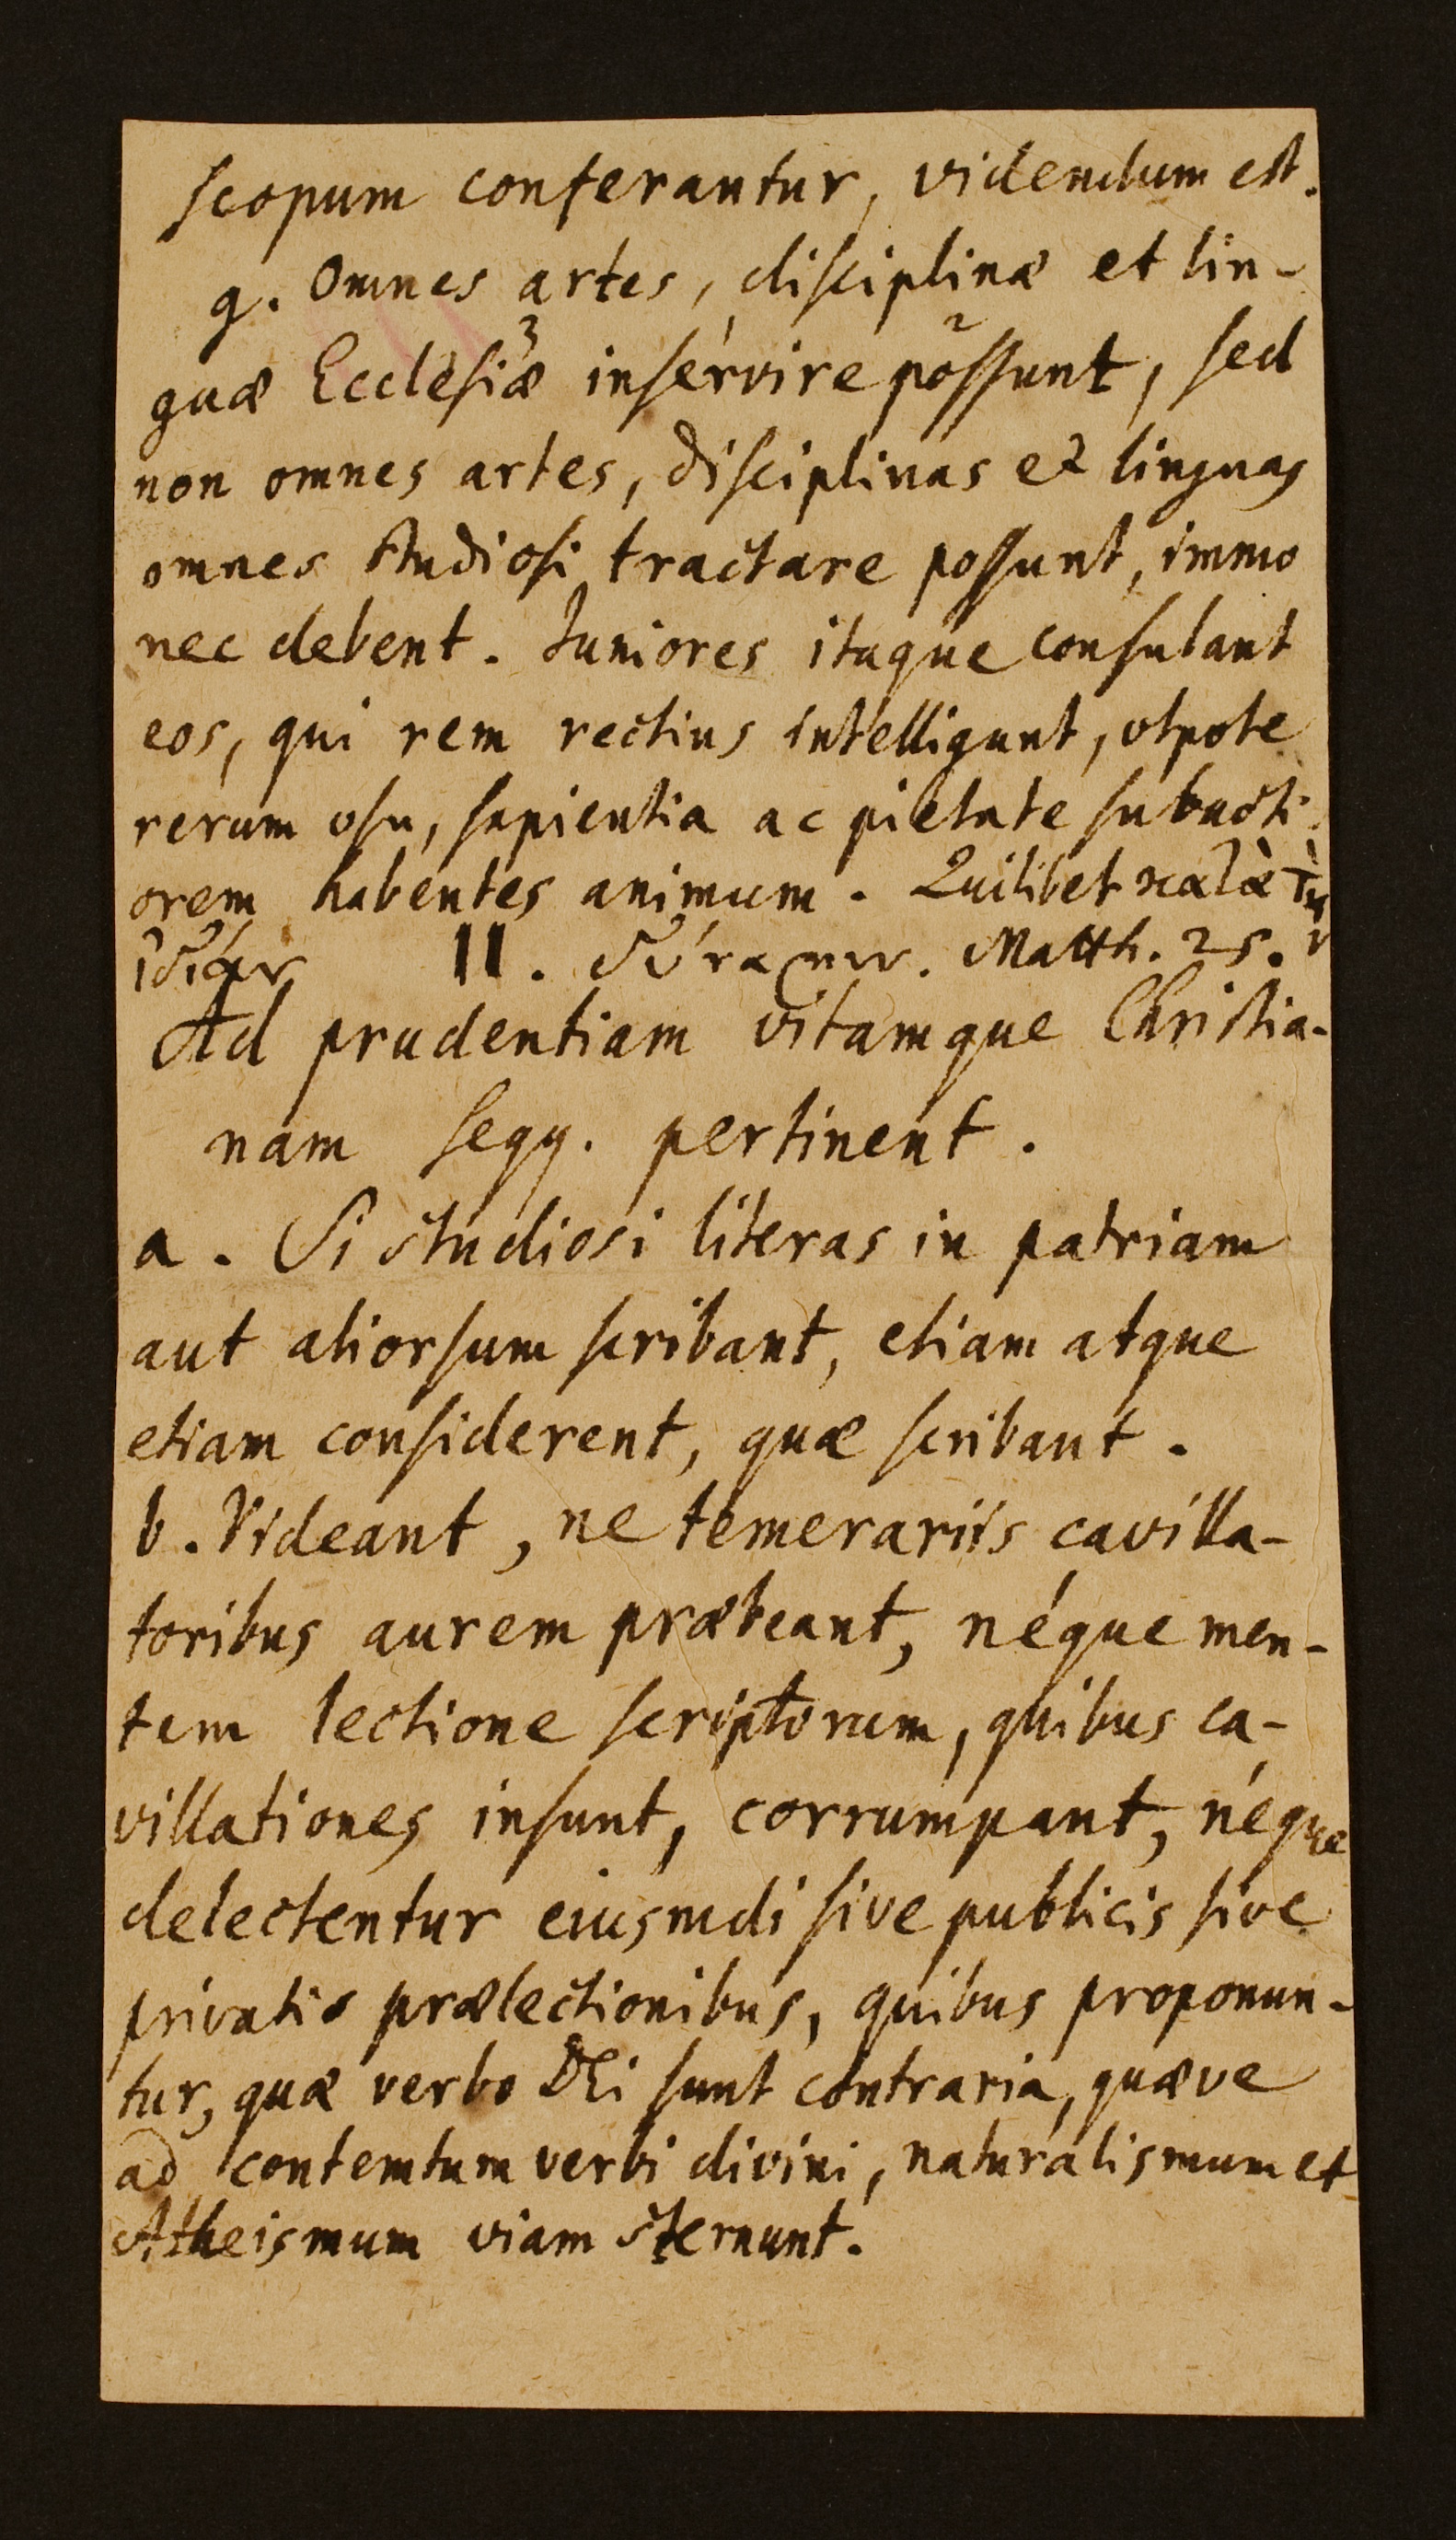 scopum conferantur, videndum est.
g. Omnes artes, disciplinæ et lin-
guæ Ecclesiæ inservire possunt, sed
non omnes artes, disciplinas et linguas
omnes studiosi tractare possunt, immo
nec debent. Juniores itaque consulant
eos, qui rem rectius intelligunt, vtpote
rerum vsu, sapientia ac pietate subacti-
orem habentes animum. Quilibet κατὰ τὴν
ἰδίαν δύναμιν. Matth. 25.
II.
Ad prudentiam vitamque Christia-
nam seqq. pertinent.
a. Si studiosi literas in patriam
aut aliorsum scribant, etiam atque
etiam considerent, quæ scribant.
b. Videant, ne temerariis cavilla-
toribus aurem præbeant, néque men-
tem lectione scriptorum, quibus ca-
villationes insunt, corrumpant, néque
delectentur eiusmdi sive publicis sive
privatis prælectionibus, quibus proponun-
tur, quæ verbo DEi sunt contraria, quæve
ad contemtum verbi divini, naturalismum et
Atheismum viam sternunt.